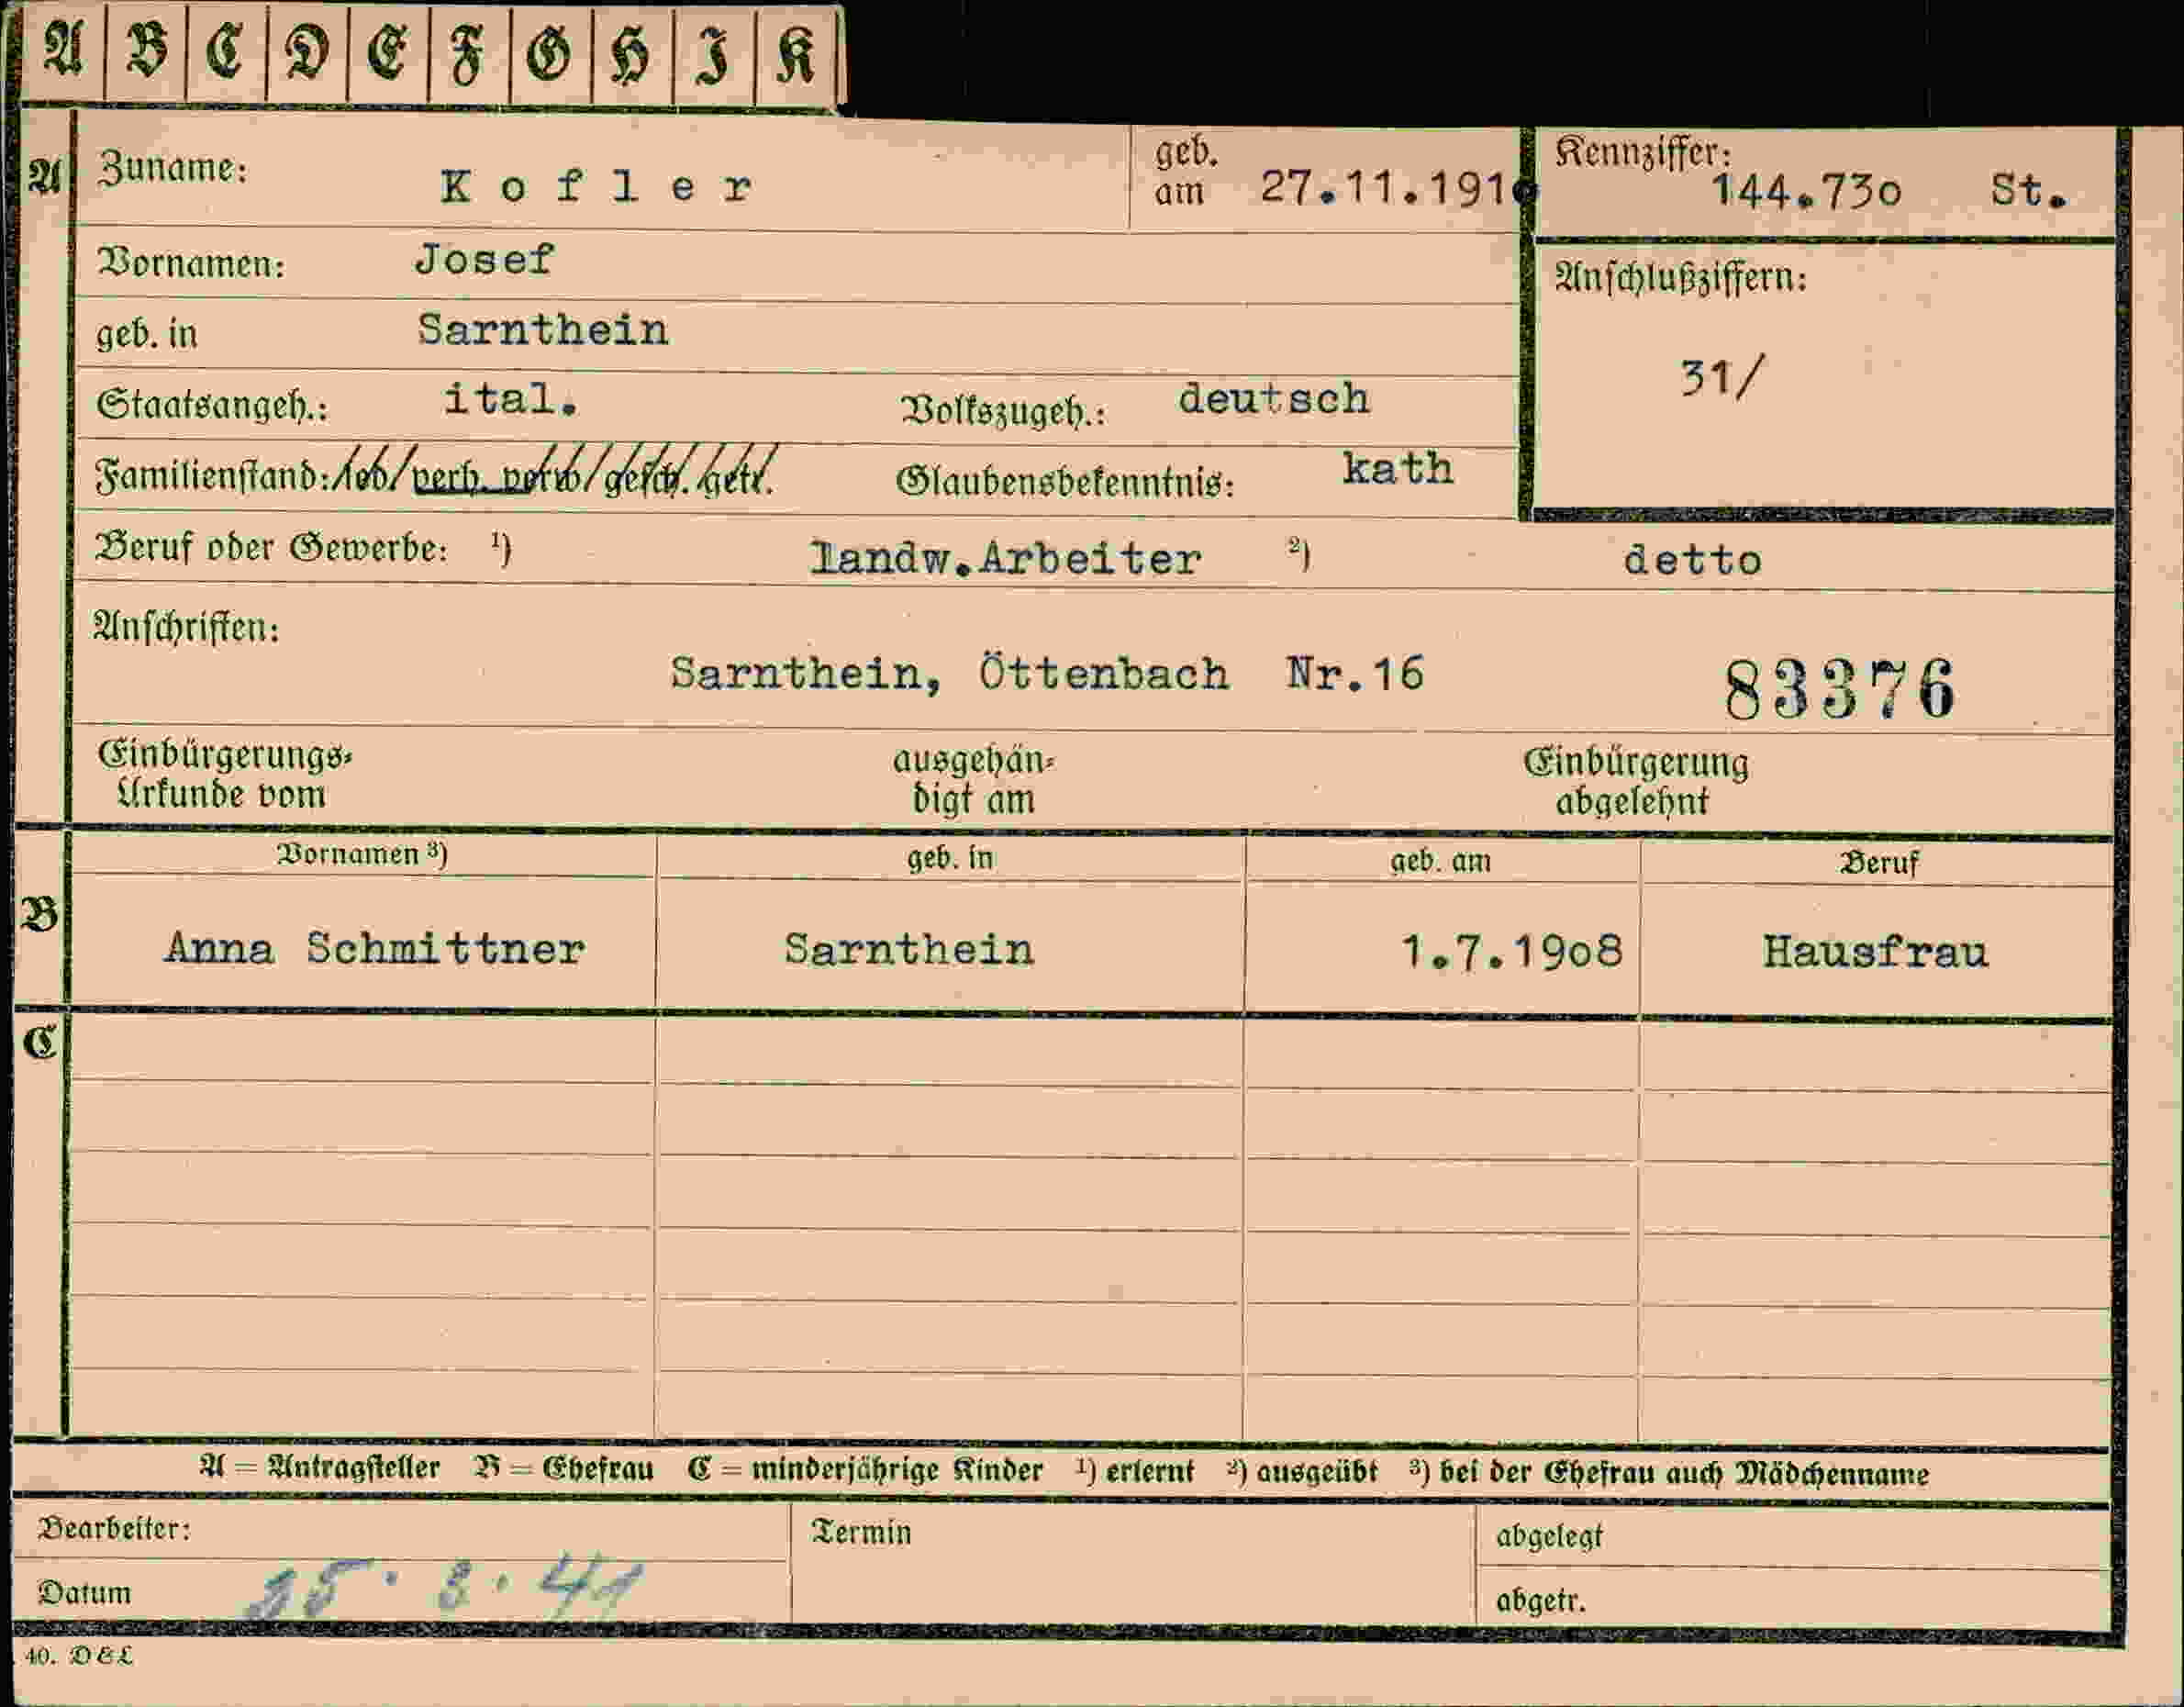 A B C D E F G H I K
A Zuname: Kofler geb. am 27.11.191o Kennziffer: 144.73o St.
Vornamen: Josef
geb. in Sarnthein Anschlußziffern:
31/
Staatsangeh.: ital. Volkszugeh.: deutsch
Familienstand: led/ verh. verw/ gesch. getr. Glaubensbekenntnis: kath
Beruf oder Gewerbe: 1) landw.Arbeiter 2) detto
Anschriften:
Sarnthein, Öttenbach Nr.16 83376
Einbürgerungs-Urkunde vom ausgehän-digt am Einbürgerung abgelehnt
Vornamen 3) geb. in geb. am Beruf
B Anna Schmittner Sarnthein 1.7.19o8 Hausfrau
C
A = Antragsteller B = Ehefrau C = minderjährige Kinder 1) erlernt 2) ausgeübt 3) bei der Ehefrau auch Mädchenname
Bearbeiter: Termin abgelegt
Datum abgetr.
40. D&L